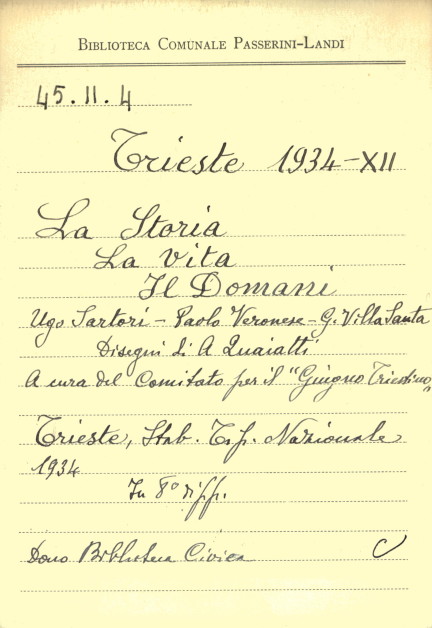 BIBLIOTECA COMUNALE PASSERINI-LANDI
45.II.4
Trieste 1934-XII
La Storia
La vita
Il Domani
Ugo Sartori - Paolo Veronese - G. Villa Santa
Disegni di A Quaiatti
A cura del Comitato per il "Giugno Triestino"
Trieste, Stab. Tip. Nazionale
1934
In 8° di pp.
Dono Biblioteca Civica